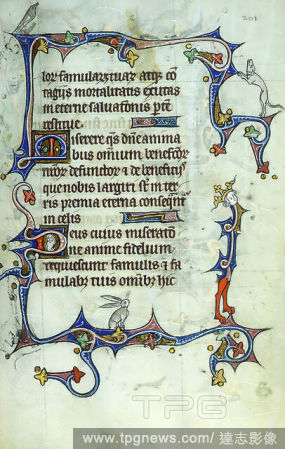 201
lor famularz tuar atqz co
tagiis mortalitatis exutas
in eterne saluatōnis ptē
restitue.
iserere qs dn̄e anima
bus omniū benefcōr
nrōr defunctor & de beneficiis
que nobis largiti st̄ in ter
ris premia eterna conseqnt̄
in celis
eus cuius miseratōn
ne anime fidelium
requiescunt famulis & fa
mulabz tuis omībz hic
TPG
www.tpgnews.com/ 達志影像